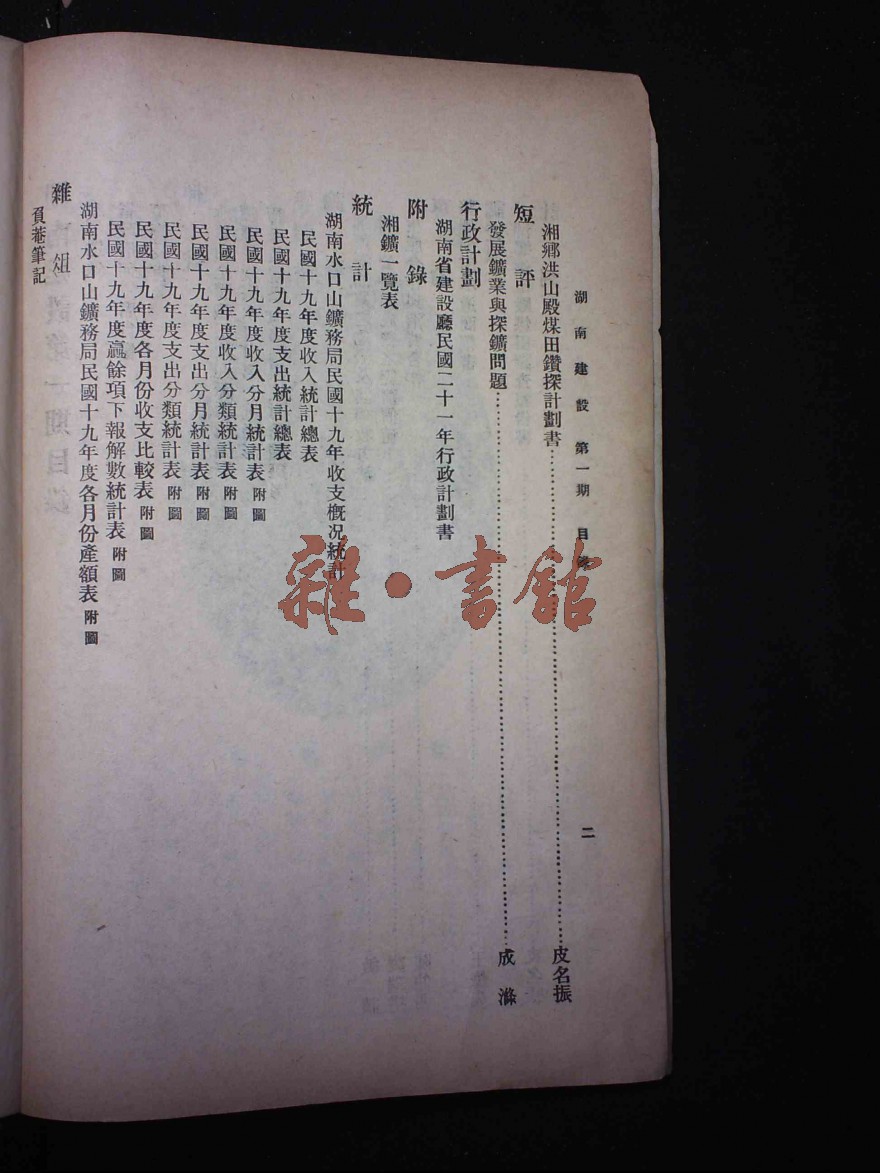 湖南建設 第一期 目錄
二
湘鄉洪山殿煤田鑽探計劃書……皮名振
短評
發展鑛業與探鑛問題……成滌
行政計劃
湖南省建設廳民國二十一年行政計劃書
附錄
湘鑛一覽表
統計
湖南水口山鑛務局民國十九年收支概況統計
民國十九年度收入統計總表
民國十九年度支出統計總表
民國十九年度收入分月統計表 附圖
民國十九年度收入分類統計表 附圖
民國十九年度支出分月統計表 附圖
民國十九年度支出分類統計表 附圖
民國十九年度各月份收支比較表 附圖
民國十九年度贏餘項下報解數統計表 附圖
湖南水口山鑛務局民國十九年度各月份產額表 附圖
雜俎
負菴筆記
雜·書館